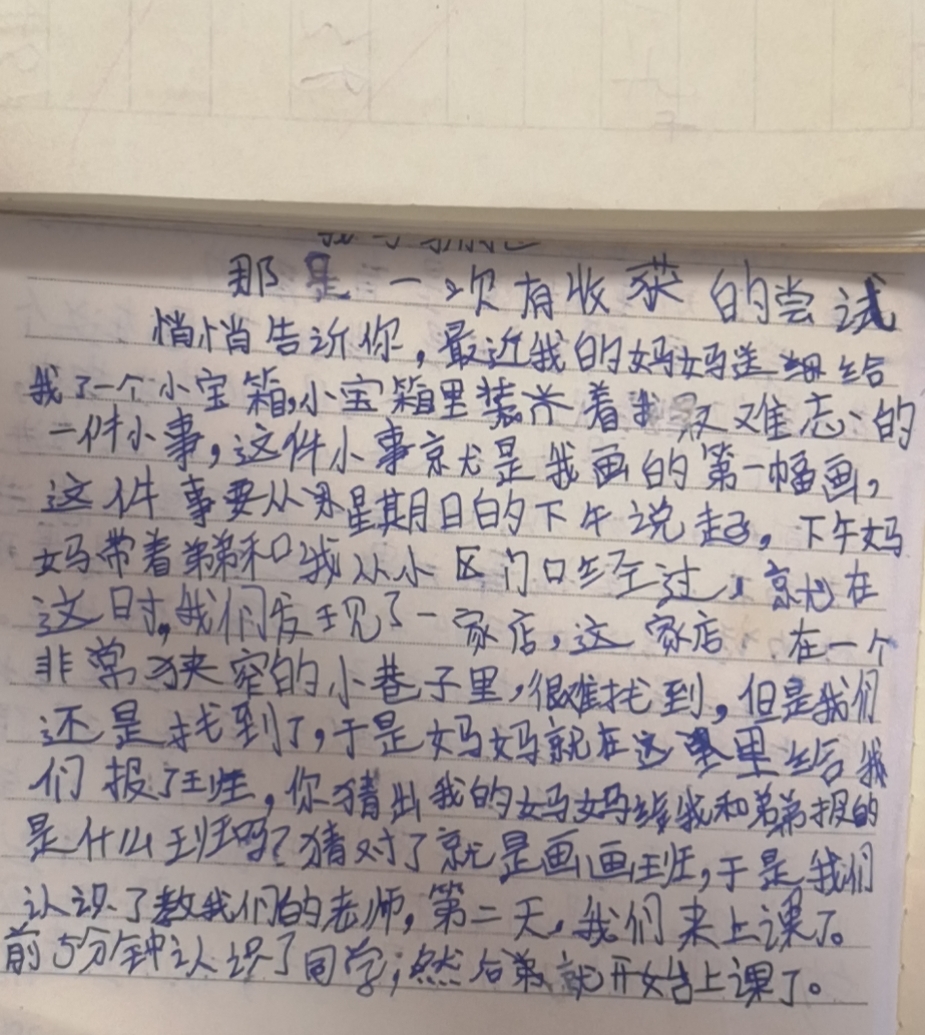 那是一次有收获的尝试
悄悄告诉你，最近我的妈妈送给
我了一个小宝箱，小宝箱里装着我最难忘的
一件小事，这件小事就是我画的第一幅画，
这件事要从星期日的下午说起，下午妈
妈带着弟弟和我从小区门口经过，就在
这时，我们发现了一家店，这家店在一个
非常狭窄的小巷子里，很难找到，但是我们
还是找到了，于是妈妈就在这里给我
们报了班，你猜出我的妈妈给我和弟弟报的
是什么班吗？猜对了就是画画班，于是我们
认识了教我们的老师，第二天，我们来上课了。
前5分钟认识了同学；然后就开始上课了。